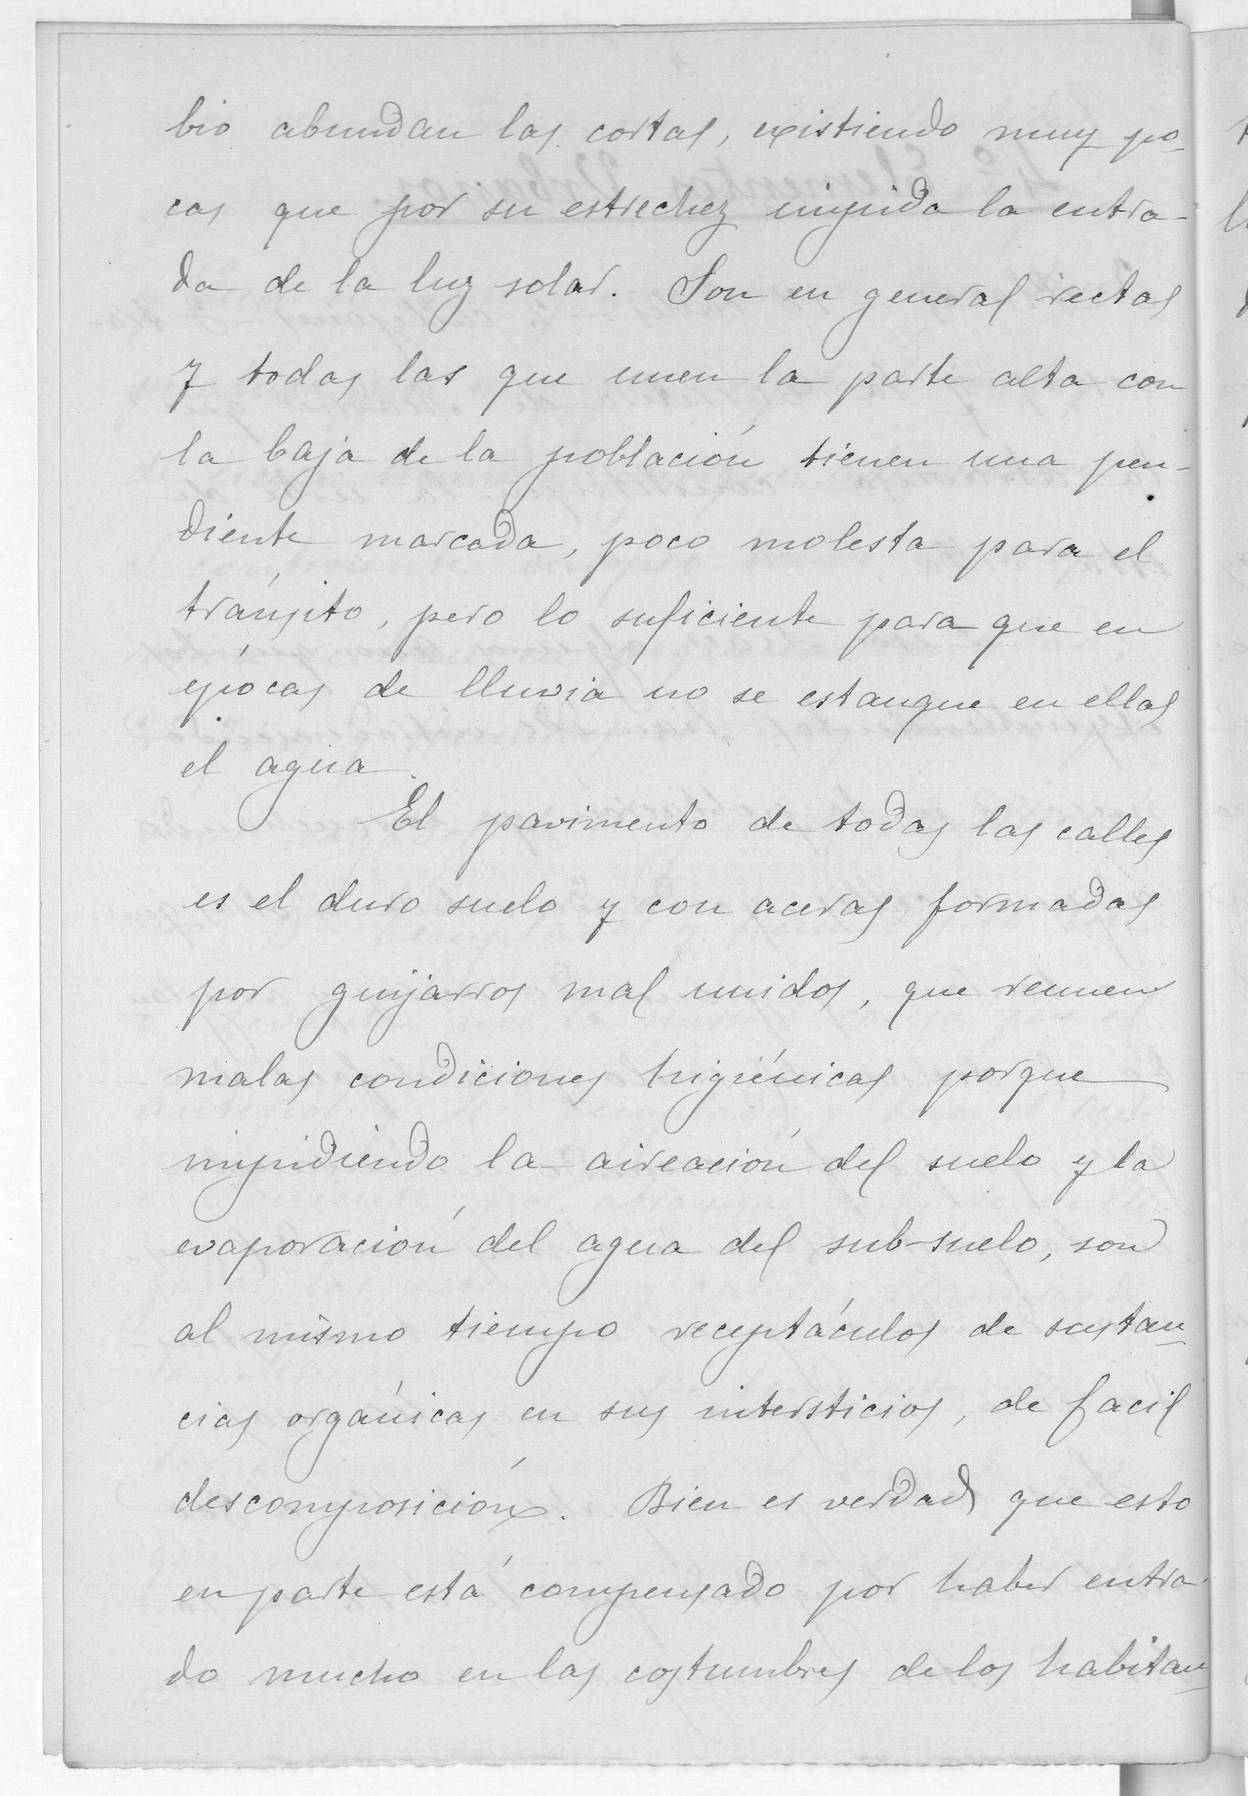 bio abundan las cortas, existiendo muy po-
cas que por su estrechez impida la entra-
da de la luz solar. Son en general rectas
y todas las que unen la parte alta con
la baja de la población tienen una pen-
diente marcada, poco molesta para el
tránsito, pero lo suficiente para que en
épocas de lluvia no se estanque en ellas
el agua.
El pavimento de todas las calles
es el duro suelo y con aceras formadas
por guijarros mal unidos, que reunen
malas condiciones higiénicas porque
impidiendo la aireación del suelo y la
evaporación del agua del sub-suelo, son
al mismo tiempo receptáculos de sustan-
cias orgánicas en sus intersticios, de facil
descomposición. Bien es verdad que esto
en parte está compensado por haber entra-
do mucho en las costumbres de los habitan-